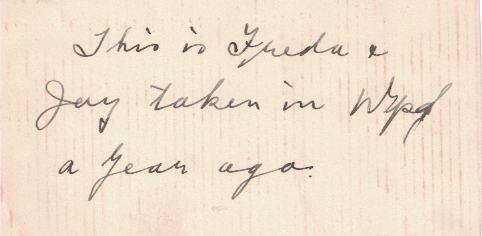 This is Freda &
Jay taken in Wpg
a year ago.